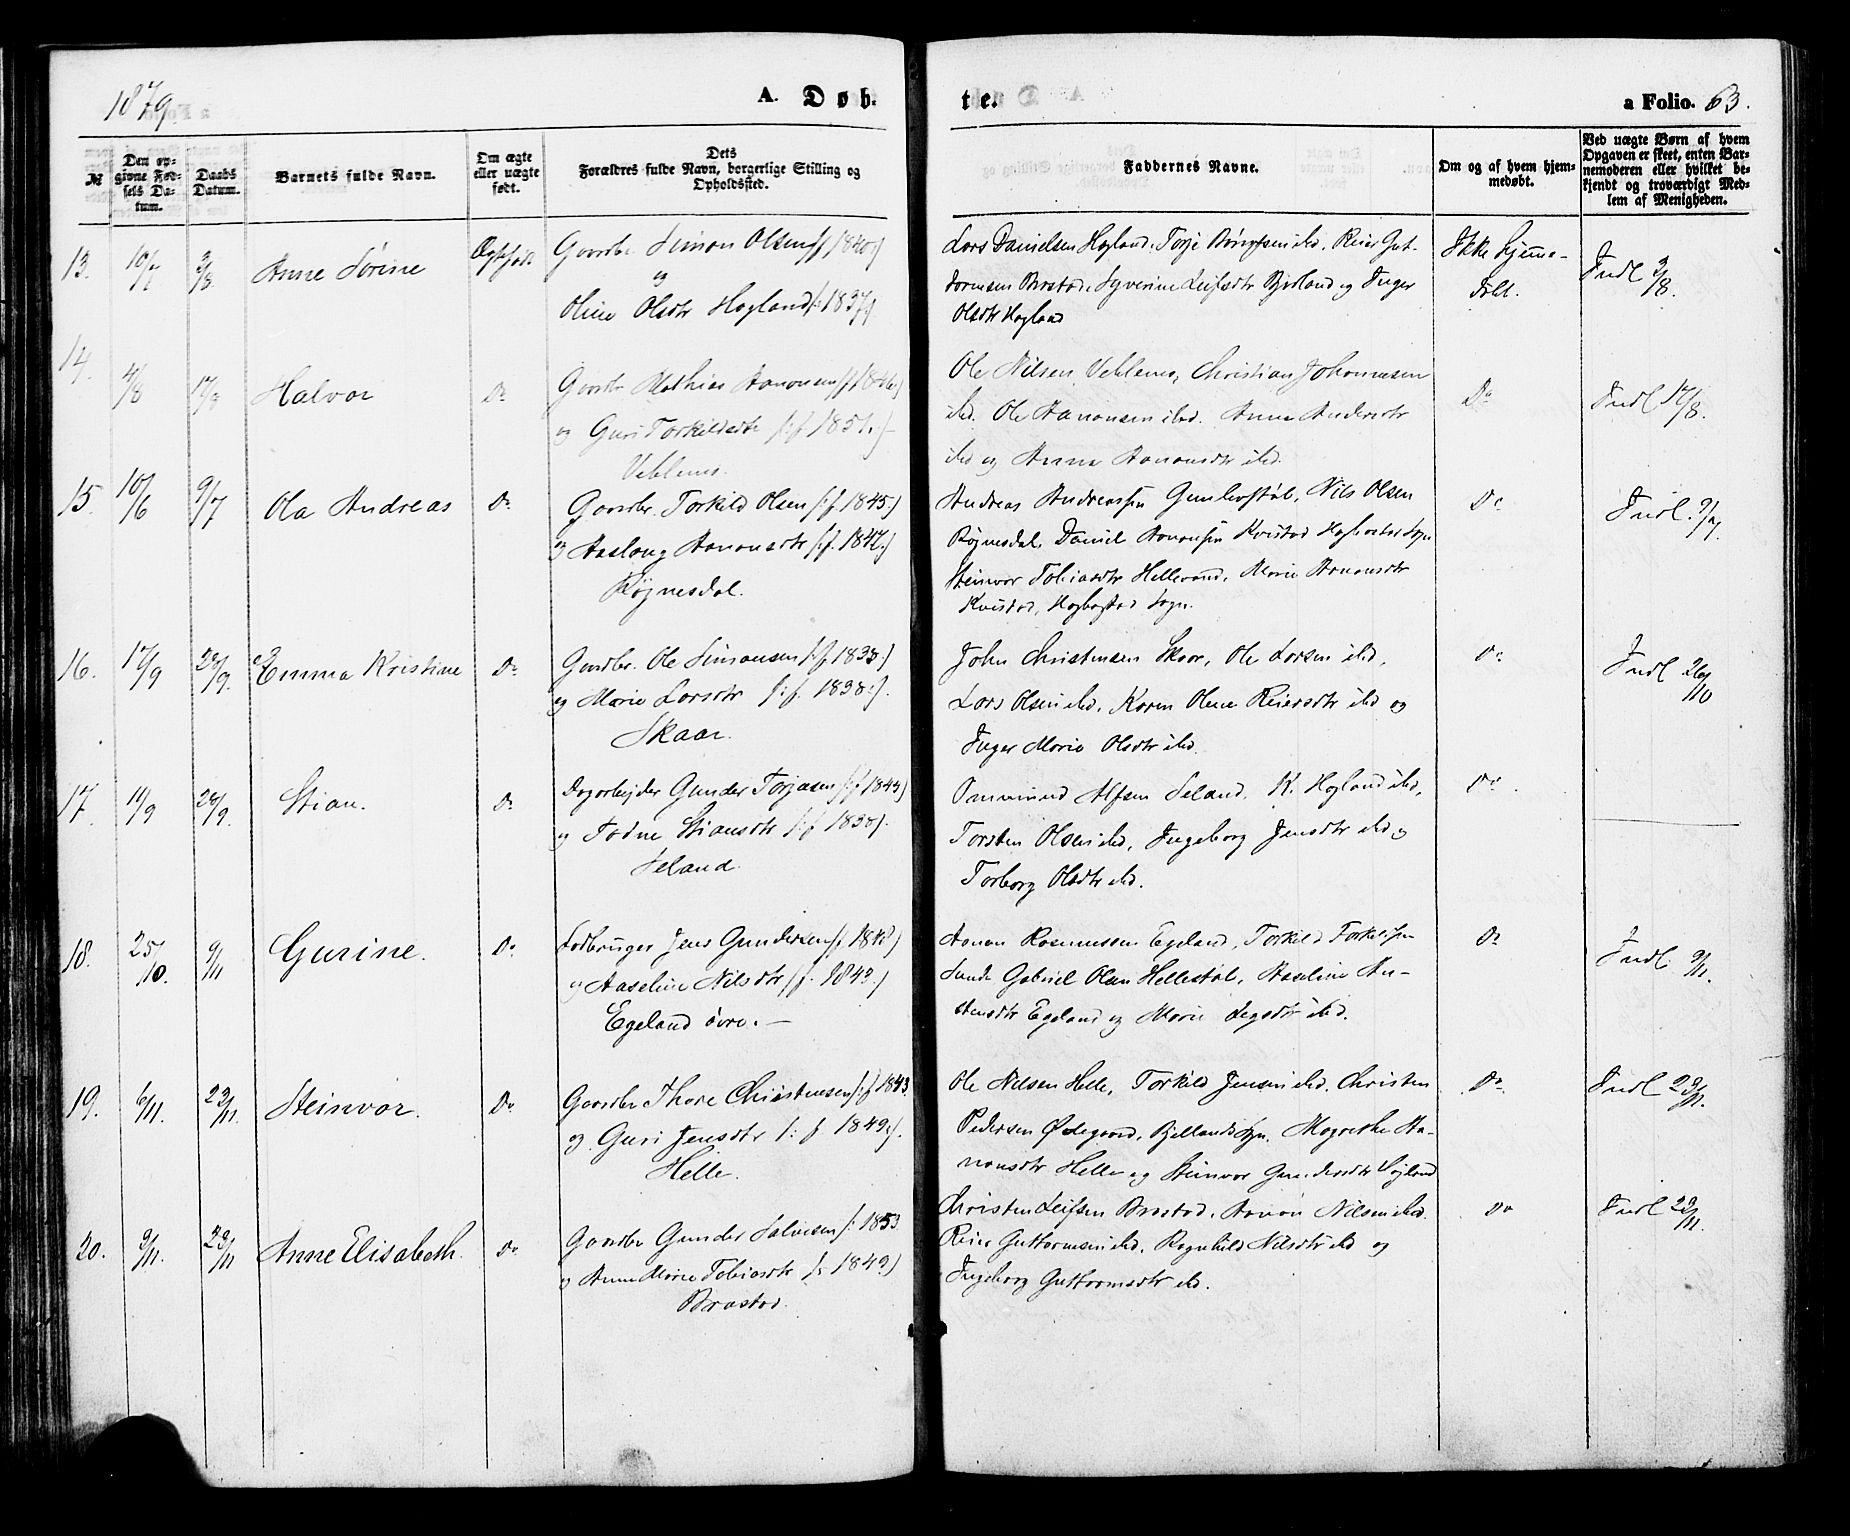 1879.
A. Døb-
te.
a Folio. 63.
№
Den opgivne Fødsels Datum.
Daabs Datum.
Barnets fulde Navn.
Om ægte eller uægte født.
Dets Forældres fulde Navn, borgerlige Stilling og Opholdssted.
Faddernes Navne.
Om og af hvem hjemmedøbt.
Ved uægte Børn af hvem Opgaven er skeet, enten Barnemoderen eller hvilket bekjendt og troværdigt Medlem af Menigheden.
13. 10/7 3/8 Anne Sørine Ægtefødt
Gaardbr. Simon Olsen /f 1840/
og
Oline Olsdtr Hogland /: 1837/
Lars Danielsen Hogland, Torje Børufsen ibd. Reier Gut-
tormsen Brastad, Syverine Leifsdtr Bjrland og Inger
Olsdtr Hogland
Ikke hjemme-
døbt.
Indl 3/8.
14. 4/8 17/8 Halvor Do
Gaardbr Mathias Aanonsen /f 1846/
og Guri Torkildsdtr /: f 1851. /
Veblems.
Ole Nilsen Veblems, Christian Johannesen
ibd. Ole Aanonsen ibd. Anne Andersdtr
ibd og Anne Aanonsdtr ibd.
Do
Indl 17/8.
15. 10/6 9/7 Ola Andreas Do
Gaardbr. Torkild Olsen /: f 1845 :/
og Aaslaug Aanonsdtr /: f. 1847 :/
Røynesdal.
Andreas Andreassen Gunlevstøl, Nils Olsen
Røynesdal, Daniel Aanonsen Kvistad Hægbostad Sogn
Steinvor Tobiasdtr Hellevand, Marie Aanonsdtr
Kvistad, Hægbostad Sogn.
Do
Indl. 9/7.
16. 17/9 28/9. Emma Kristine Do
Gaardbr. Ole Simonsen /: f 1838 /
og Marie Larsdtr /: f. 1838 :/.
Skaar.
John Christensen Skaar, Ole Larsen ibd,
Lars Olsen ibd, Karen Olene Reiersdtr ibd og
Inger Marie Olsdtr ibd.
Do
Indl 26/10
17. 11/9 28/9. Stian. Do
Dagarbejder Gunder Torjasen /: f 1843/
og Todne Stiansdtr /: f 1838/.
Seland.
Ommund Alfsen Seland, K. Hogland ibd,
Torsten Olsen ibd, Ingeborg Jensdtr ibd og
Torborg Olsdtr ibd.
Do.
18. 25/10. 9/11 Gurine. Do
Lodbruger Jens Gundersen /f. 1848/
og Aaseline Nilsdtr /f. 1843./
Egeland øvre. —
Aanon Rasmussen Egeland, Torkild Torkildsen
Sande Gabriel Olsen Hellestøl, Aaseline Au-
stensdtr Egeland og Marie Legsdtr ibd.
Do
Indl. 9/11.
19. 6/11. 23/11. Steinvor. Do
Gaardbr Thore Christensen /: f 1843.
og Guri Jensdtr /: f 1849 :/.
Helle.
Ole Nilsen Helle, Torkild Jensen ibd. Christen
Pedersen Ødegaard, Bjellands Sgn. Magrethe Aa-
nonsdtr Helle og Steinvor Gundersdtr Søyland
Do.
Indl 23/11.
20. 9/11. 23/11 Anne Elisabeth. Do
Gaardbr Gunder Salvesen /: 1853
og Anne Marie Tobiasdtr /: 1849/
Brastad.
Christen Leifsen Brastad, Aanon Nilsen ibd.
Reier Guttormsen ibd, Ragnhild Nilsdtr ibd og
Ingeborg Guttormsdtr ibd.
Do
Indl 23/11.